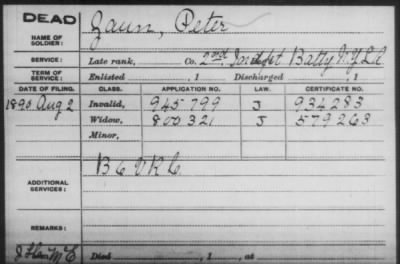 DEAD
NAME OF SOLDIER: Zaun, Peter
SERVICE: Late rank, Co. 2nd Batty N.Y. L.A.
TERM OF SERVICE: Enlisted , 1 Discharged , 1
DATE OF FILING. CLASS. APPLICATION NO. LAW. CERTIFICATE NO.
1890 Aug 2 Invalid, 945799 J 934283
Widow, 800321 J 579263
Minor,
ADDITIONAL SERVICES: B 6 V R C
REMARKS:
Died , 1 , at